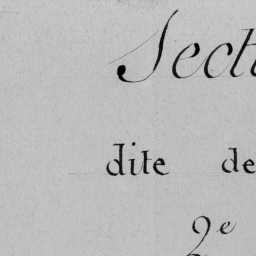 Sect
dite de
2e